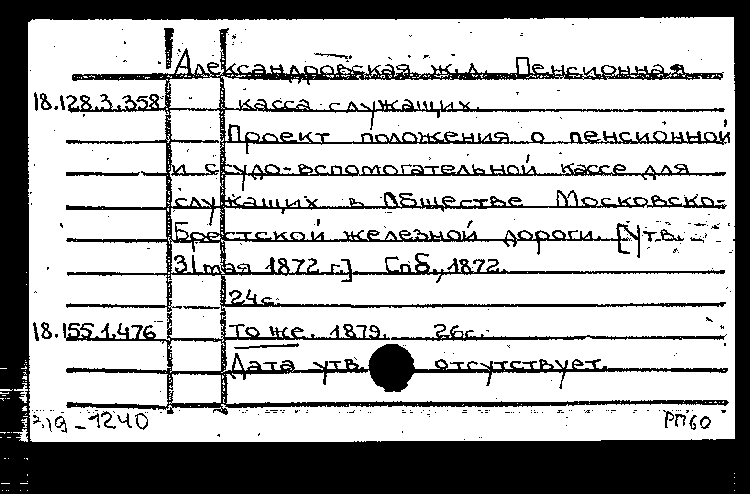 Александровская ж.д. Пенсионная
18.128.3.358 касса служащих.
Проект положения о пенсионной
и ссудо-вспомогательной кассе для
служащих в Обществе Московско-
Брестской железной дороги. [Утв.
31 мая 1872 г.]. Спб., 1872.
24с.
18.155.1.476 То же. 1879. 26с.
Дата утв. отсутствует.
219-1240 РП60